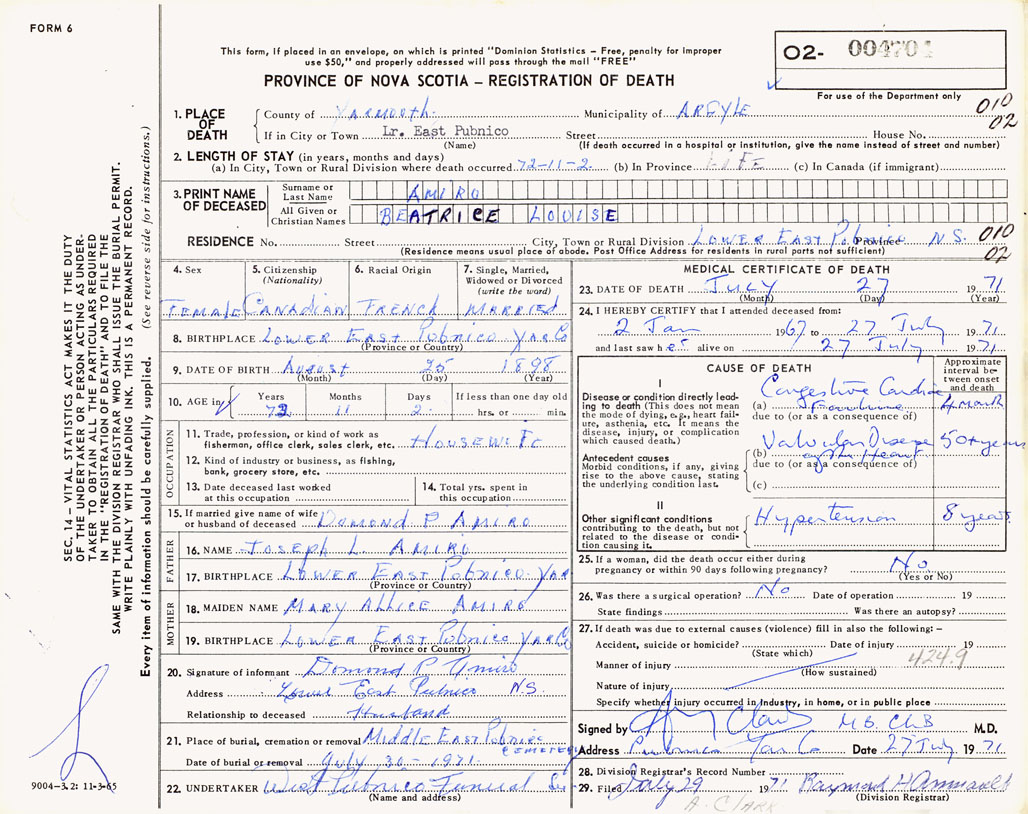 FORM 6
This form, if placed in an envelope, on which is printed "Dominion Statistics – Free, penalty for improper
use $50," and properly addressed will pass through the mail "FREE"
PROVINCE OF NOVA SCOTIA – REGISTRATION OF DEATH
02- 004704
For use of the Department only
010
02
1. PLACE OF DEATH
County of Yarmouth Municipality of ARGYLE
If in City or Town Lr. East Pubnico Street House No.
(Name) (If death occurred in a hospital or institution, give the name instead of street and number)
2. LENGTH OF STAY (in years, months and days)
(a) In City, Town or Rural Division where death occurred 72-11-2 (b) In Province LIFE (c) In Canada (if immigrant)
3. PRINT NAME OF DECEASED
Surname or Last Name AMIRO
All Given or Christian Names BEATRICE LOUISE
RESIDENCE No. Street City, Town or Rural Division LOWER EAST Pubnico Province N S. 010
02
(Residence means usual place of abode. Post Office Address for residents in rural parts not sufficient)
4. Sex
FEMALE
5. Citizenship
(Nationality)
CANADIAN
6. Racial Origin
FRENCH
7. Single, Married,
Widowed or Divorced
(write the word)
MARRIED
8. BIRTHPLACE LOWER EAST Pubnico YAR Co
(Province or Country)
9. DATE OF BIRTH AUGUST 25 1898
(Month) (Day) (Year)
10. AGE in Years Months Days If less than one day old
72 11 2 hrs. or min.
OCCUPATION
11. Trade, profession, or kind of work as
fisherman, office clerk, sales clerk, etc. HOUSEWIFE
12. Kind of industry or business, as fishing,
bank, grocery store, etc.
13. Date deceased last worked
at this occupation
14. Total yrs. spent in
this occupation
15. If married give name of wife
or husband of deceased DOMOND P AMIRO
FATHER
16. NAME JOSEPH L. AMIRO
17. BIRTHPLACE LOWER EAST Pubnico YAR
(Province or Country)
MOTHER
18. MAIDEN NAME MARY ALLICE AMIRO
19. BIRTHPLACE LOWER EAST Pubnico YAR Co
(Province or Country)
20. Signature of informant Domond P. Amiro
Address Lower East Pubnico N.S.
Relationship to deceased Husband
21. Place of burial, cremation or removal Middle East Pubnico
CEMETERY
Date of burial or removal July 30 - 1971
22. UNDERTAKER West Pubnico Funeral
(Name and address)
MEDICAL CERTIFICATE OF DEATH
23. DATE OF DEATH JULY 27 1971
(Month) (Day) (Year)
24. I HEREBY CERTIFY that I attended deceased from:
2 Jan 1967 to 27 July 1971
and last saw her alive on 27 July 1971
CAUSE OF DEATH
Approximate
interval be-
tween onset
and death
I
Disease or condition directly lead-
ing to death (This does not
mean the mode of dying, e.g., heart fail-
ure, asthenia, etc. It means the
disease, injury, or complication
which caused death.)
Congestive Cardiac
(a) Failure 4 month
due to (or as a consequence of)
Antecedent causes
Morbid conditions, if any, giving
rise to the above cause, stating
the underlying condition last.
Valvular Disease 50+ years
(b) of the Heart
due to (or as a consequence of)
(c)
II
Other significant conditions
contributing to the death, but not
related to the disease or condi-
tion causing it.
Hypertension 8 years
25. If a woman, did the death occur either during
pregnancy or within 90 days following pregnancy? No
(Yes or No)
26. Was there a surgical operation? No Date of operation 19
State findings Was there an autopsy?
27. If death was due to external causes (violence) fill in also the following: –
Accident, suicide or homicide? Date of injury 19
(State which)
424.9
Manner of injury
(How sustained)
Nature of injury
Specify whether injury occurred in industry, in home, or in public place
Signed by M.B. Ch.B M.D.
Address Pubnico Yar Co Date 27 July 1971
28. Division Registrar's Record Number
29. Filed July 29 1971 Raymond H
(Division Registrar)
A. CLARK
SEC. 14 – VITAL STATISTICS ACT MAKES IT THE DUTY
OF THE UNDERTAKER OR PERSON ACTING AS UNDER-
TAKER TO OBTAIN ALL THE PARTICULARS REQUIRED
IN THE "REGISTRATION OF DEATH" AND TO FILE THE
SAME WITH THE DIVISION REGISTRAR WHO SHALL ISSUE THE BURIAL PERMIT.
WRITE PLAINLY WITH UNFADING INK. THIS IS A PERMANENT RECORD.
Every item of information should be carefully supplied. (See reverse side for instructions.)
9004-3.2: 11-3-65